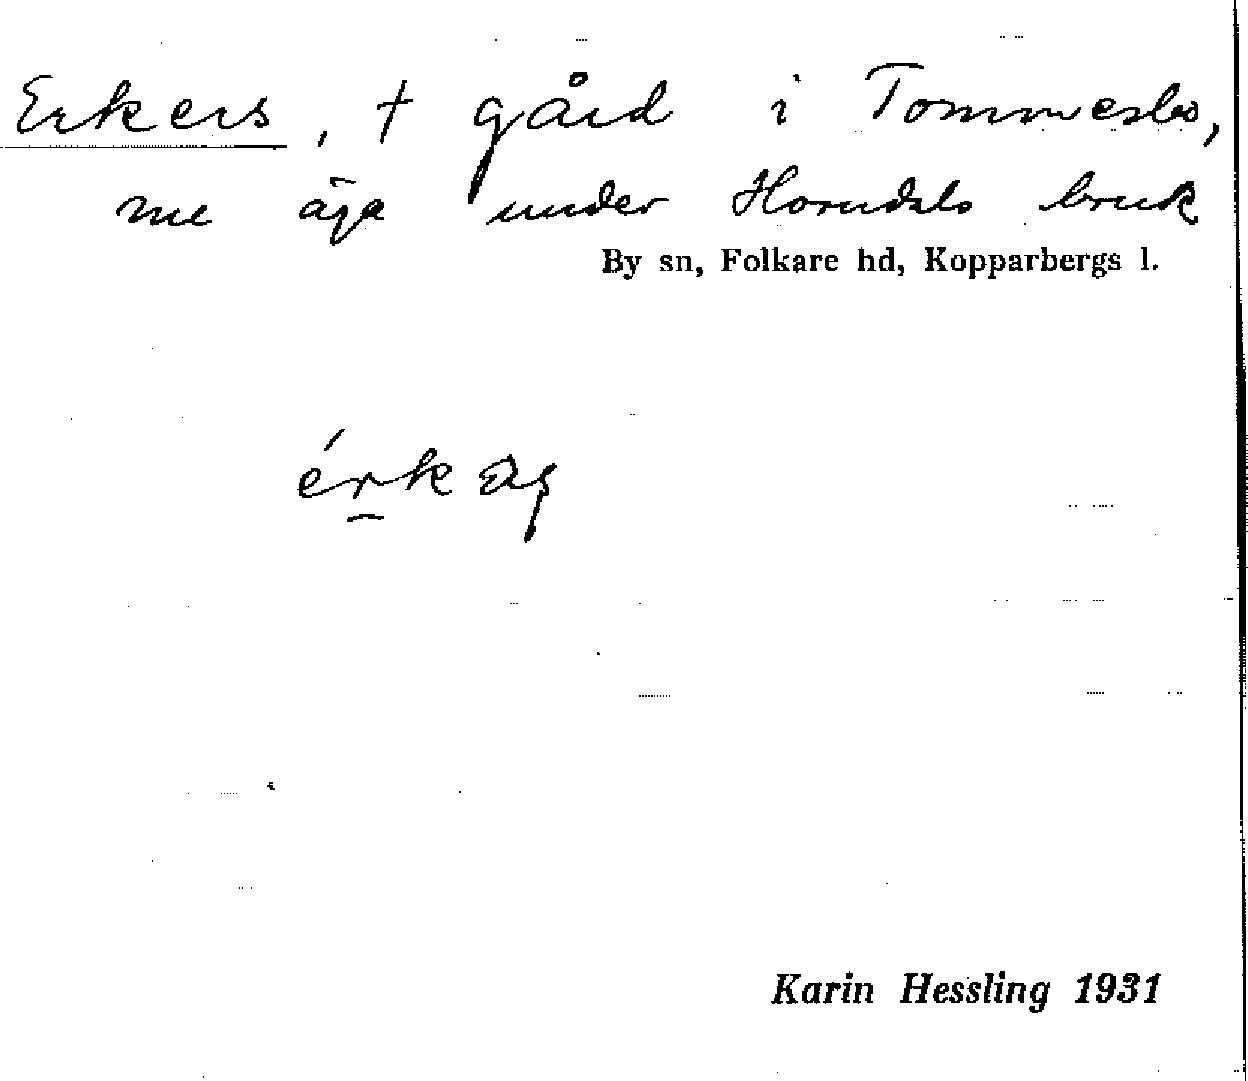 Erkers, † gård i Tommesbo,
nu äga under Horndals bruk
By sn, Folkare hd, Kopparbergs l.
Karin Hessling 1931